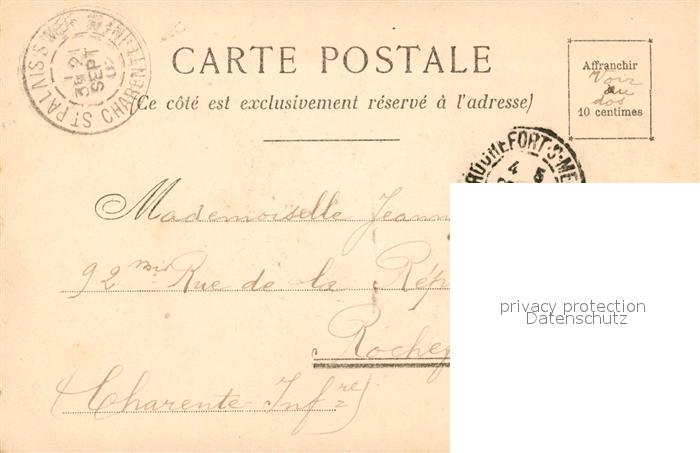 ST PALAIS-S-MER
CHARENTE INF
SEPT
CARTE POSTALE
(Ce côté est exclusivement réservé à l'adresse)
Affranchir
Voir
au
dos
10 centimes
ROCHEFORT-S-ME
4 5
Mademoiselle Jeann
92 bis Rue de la Rép
Rochef
(Charente-Infre)
privacy protection
Datenschutz